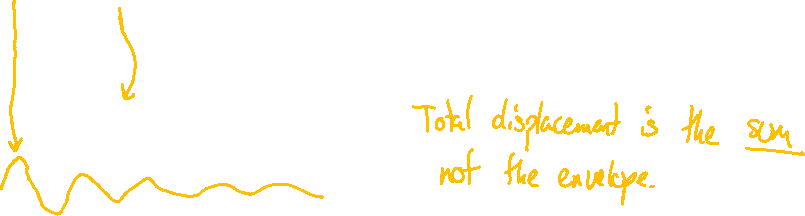 Total displacement is the sum
not the envelope.